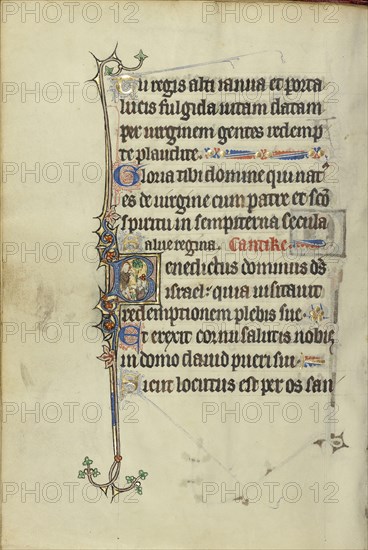 Tu regis alti ianua et porta
lucis fulgida uitam datam
per uirginem gentes redemp
te plaudite.
Gloria tibi domine qui nat'
es de uirgine cum patre et sco
spiritu in sempiterna secula
Salue regina. Cantike.
Benedictus dominus ds
israel: quia uisitauit
redemptionem plebis sue.
Et erexit cornu salutis nobis
in domo dauid pueri sui.
Sicut locutus est per os san
PHOTO 12